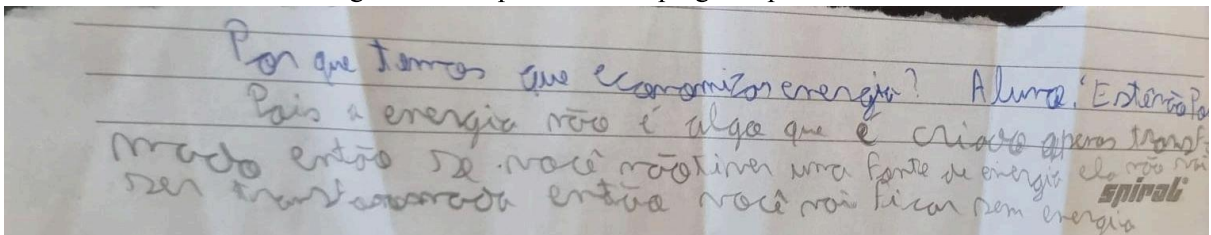 Por que temos que economizar energia? Aluno: Estevão
Pois a energia não é algo que é criado apenas transfor
mado então se você não tiver uma fonte de energia ela não vai
ser transformada então você vai ficar sem energia
spiral